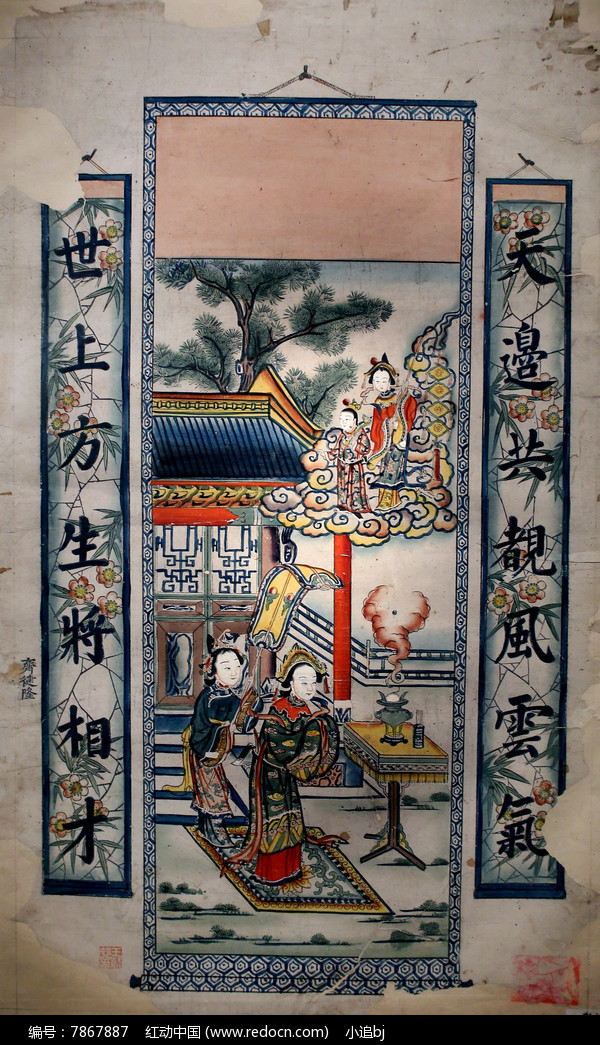 天邊共靚風雲氣
世上方生將相才
齊健隆
编号：7867887 红动中国 (www.redocn.com) 小追bj